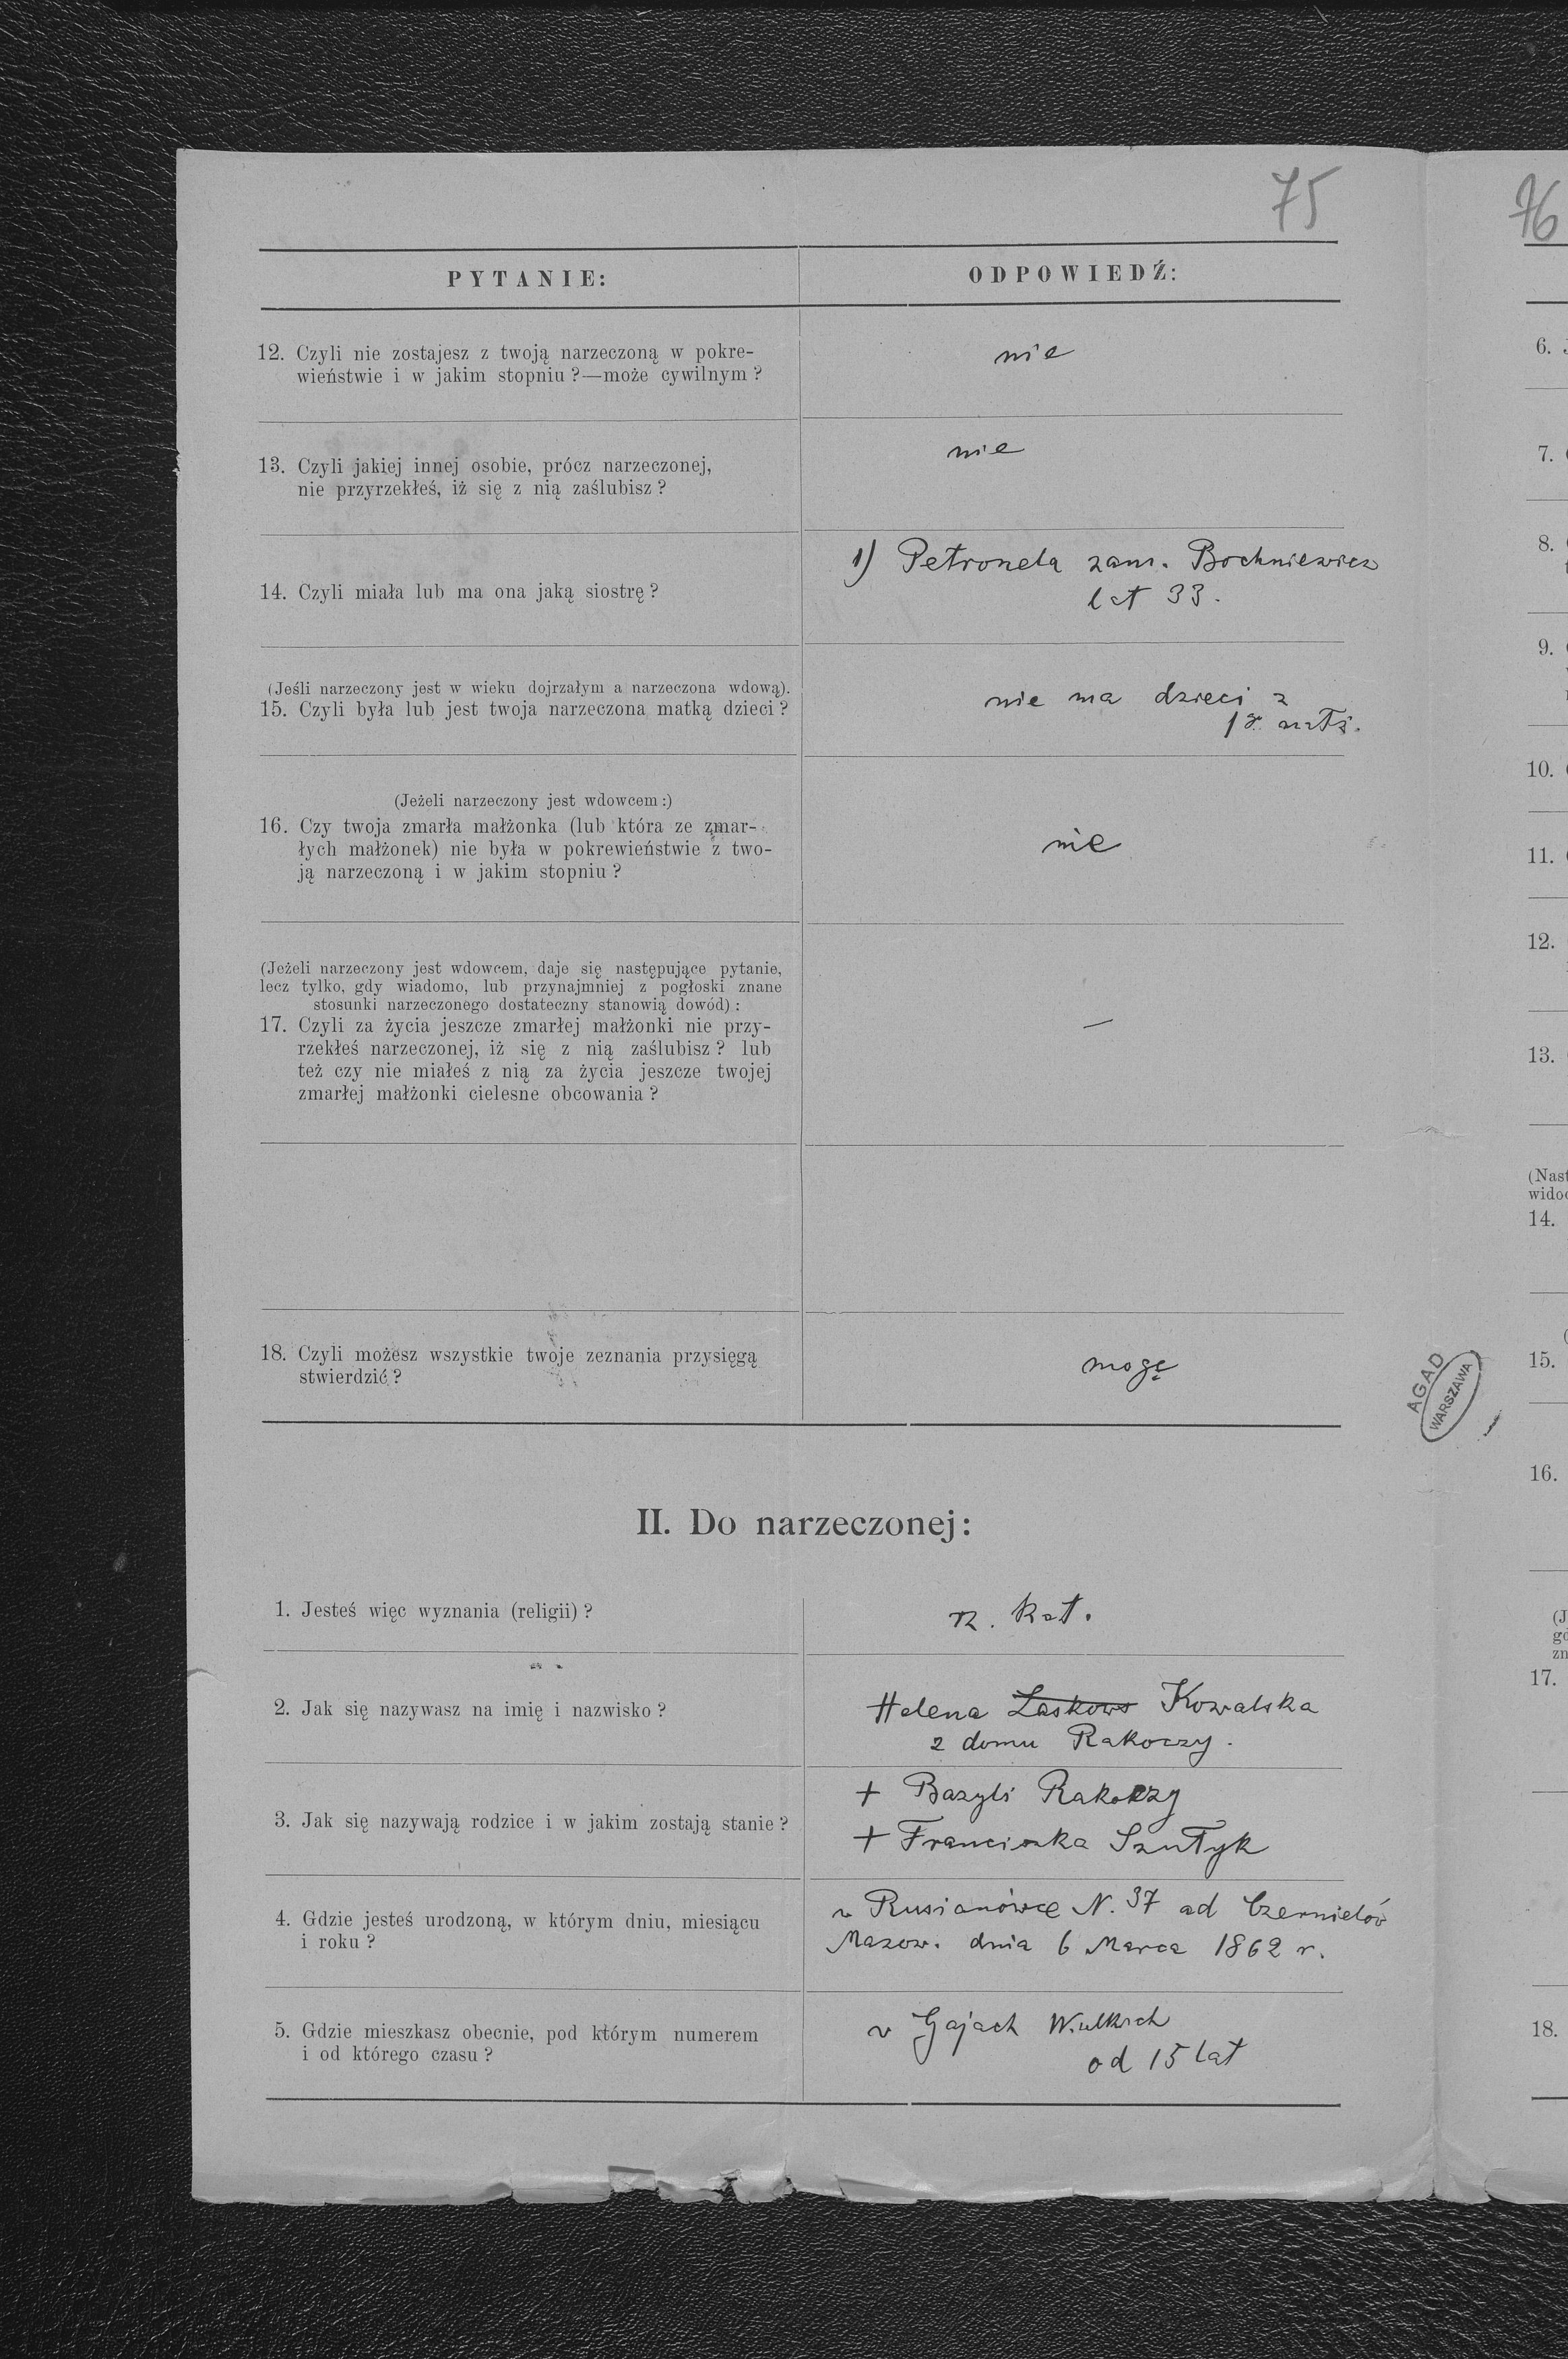 75
76
PYTANIE:
ODPOWIEDŹ:
12. Czyli nie zostajesz z twoją narzeczoną w pokre-
wieństwie i w jakim stopniu?—może cywilnym?
nie
13. Czyli jakiej innej osobie, prócz narzeczonej,
nie przyrzekłeś, iż się z nią zaślubisz?
nie
14. Czyli miała lub ma ona jaką siostrę?
1) Petronela zam. Bochniewicz
lat 33.
(Jeśli narzeczony jest w wieku dojrzałym a narzeczona wdową).
15. Czyli była lub jest twoja narzeczona matką dzieci?
nie ma dzieci z
(Jeżeli narzeczony jest wdowcem:)
16. Czy twoja zmarła małżonka (lub która ze zmar-
łych małżonek) nie była w pokrewieństwie z two-
ją narzeczoną i w jakim stopniu?
nie
(Jeżeli narzeczony jest wdowcem, daje się następujące pytanie,
lecz tylko, gdy wiadomo, lub przynajmniej z pogłoski znane
stosunki narzeczonego dostateczny stanowią dowód):
17. Czyli za życia jeszcze zmarłej małżonki nie przy-
rzekłeś narzeczonej, iż się z nią zaślubisz? lub
też czy nie miałeś z nią za życia jeszcze twojej
zmarłej małżonki cielesne obcowania?
—
18. Czyli możesz wszystkie twoje zeznania przysięgą
stwierdzić?
mogę
II. Do narzeczonej:
1. Jesteś więc wyznania (religii)?
rz. kat.
2. Jak się nazywasz na imię i nazwisko?
Helena Laskows Kowalska
z domu Rakoczy.
3. Jak się nazywają rodzice i w jakim zostają stanie?
+ Bazyli Rakoczy
+ Franciszka Szutyk
4. Gdzie jesteś urodzoną, w którym dniu, miesiącu
i roku?
w Rusianówce N. 37 ad Czernielów
Mazow. dnia 6 Marca 1862 r.
5. Gdzie mieszkasz obecnie, pod którym numerem
i od którego czasu?
w Gajach Wielkich
od 15 lat
AGAD
WARSZAWA
6.
7.
8.
9.
10.
11.
12.
13.
(Nast
widoc
14.
15.
16.
17.
18.